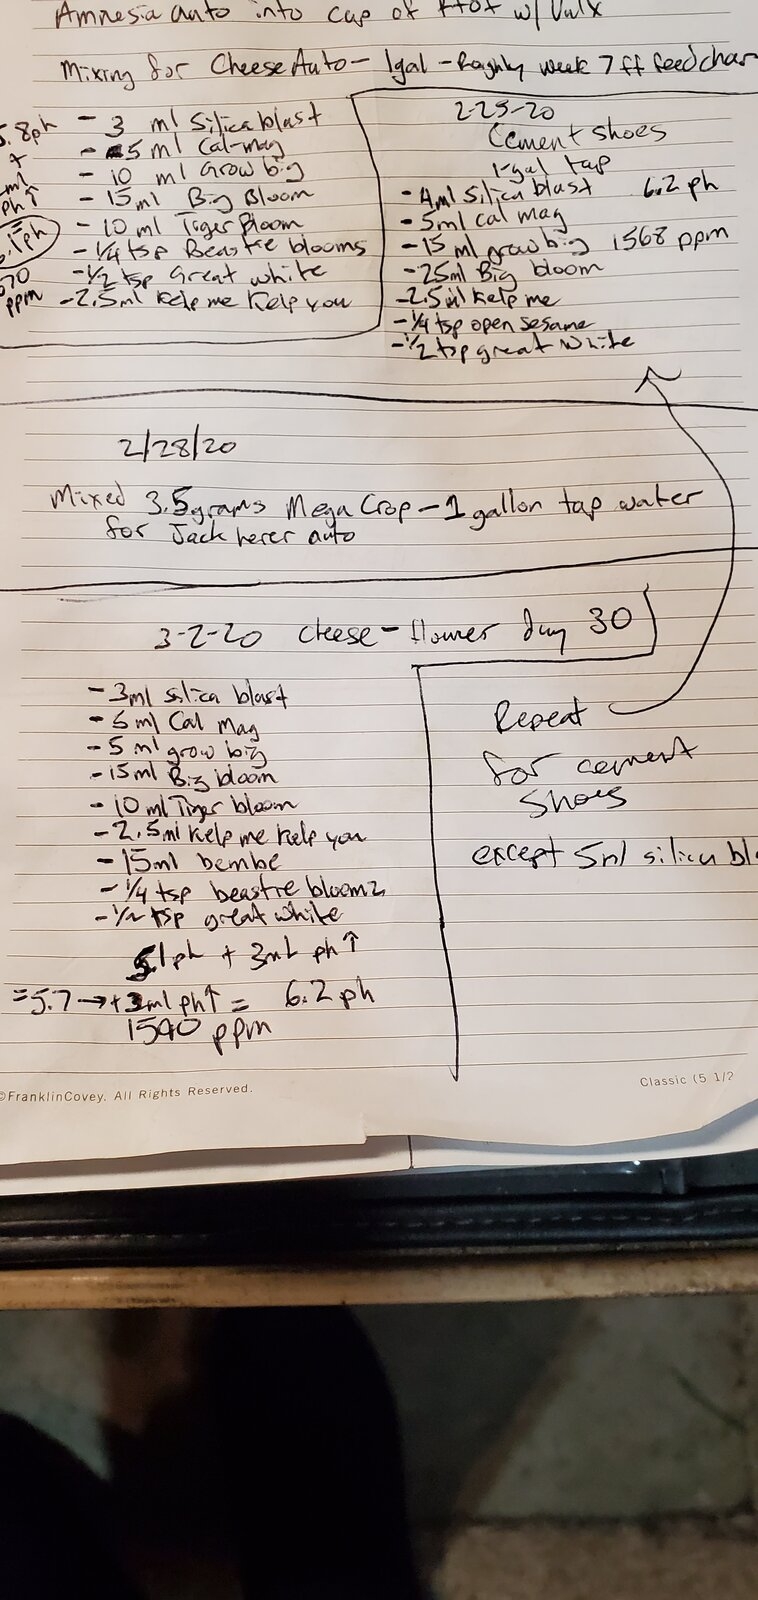 Amnesia auto into cup of FFOF w/
Mixing for Cheese Auto - 1gal - Roughly week 7 ff feed char
5.8ph
+
ml
ph↑
6.1ph
ppm
- 3 ml Silica blast
- 5 ml Cal-mag
- 10 ml Grow big
- 15ml Big Bloom
- 10 ml Tiger Bloom
- 1/4 tsp Beastie blooms
- 1/2 tsp Great white
- 2.5ml Kelp me Kelp you
2-25-20
Cement shoes
1-gal tap
- 4ml Silica blast 6.2 ph
- 5ml cal mag
- 15 ml grow big 1568 ppm
- 25ml Big bloom
- 2.5ml Kelp me
- 1/4 tsp open sesame
- 1/2 tsp great white
2/28/20
Mixed 3.5grams Mega Crop - 1 gallon tap water
for Jack herer auto
3-2-20 cheese - flower day 30
- 3ml silica blast
- 5 ml Cal Mag
- 5 ml grow big
- 15ml Big bloom
- 10 ml Tiger bloom
- 2.5ml Kelp me Kelp you
- 15ml bembe
- 1/4 tsp beastie bloomz
- 1/2 tsp great white
5.1ph + 3ml ph↑
=5.7 →+3ml ph↑ = 6.2 ph
1540 ppm
Repeat
for cement
shoes
except 5ml silica bla
©FranklinCovey. All Rights Reserved.
Classic (5 1/2